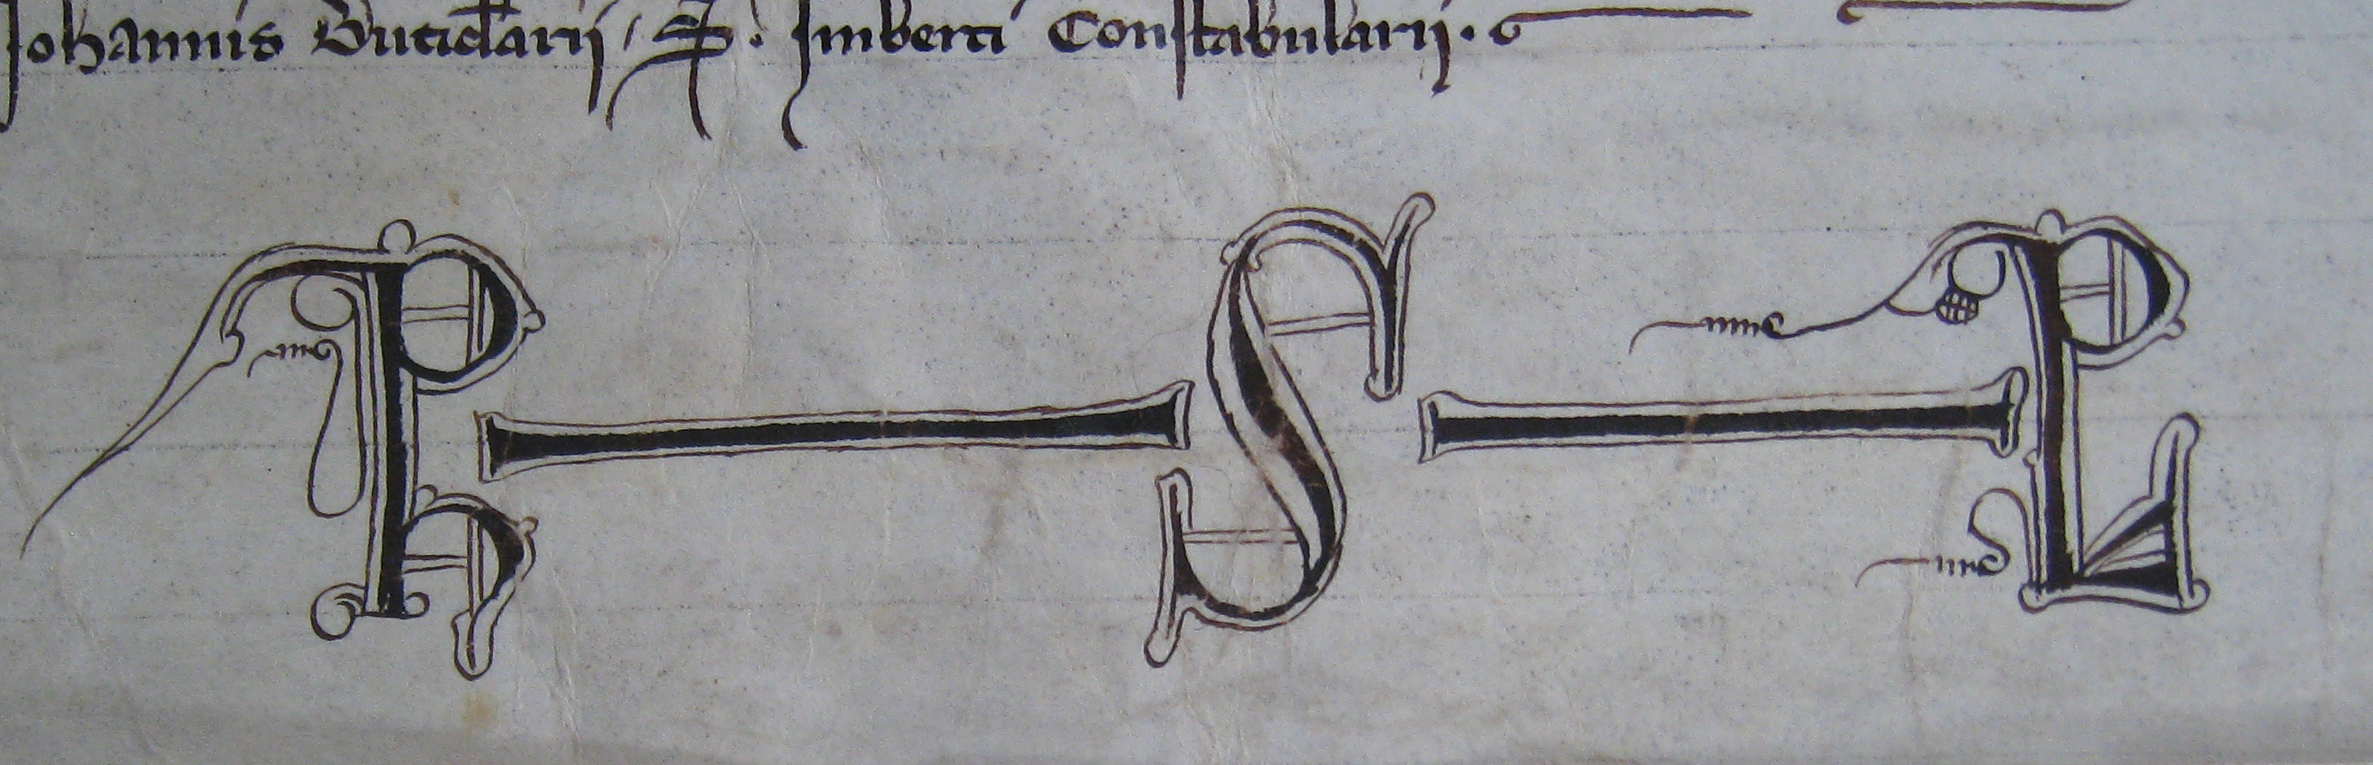 Johannis Buticlarii / S. Imberti Constabularii.
Ph S PL